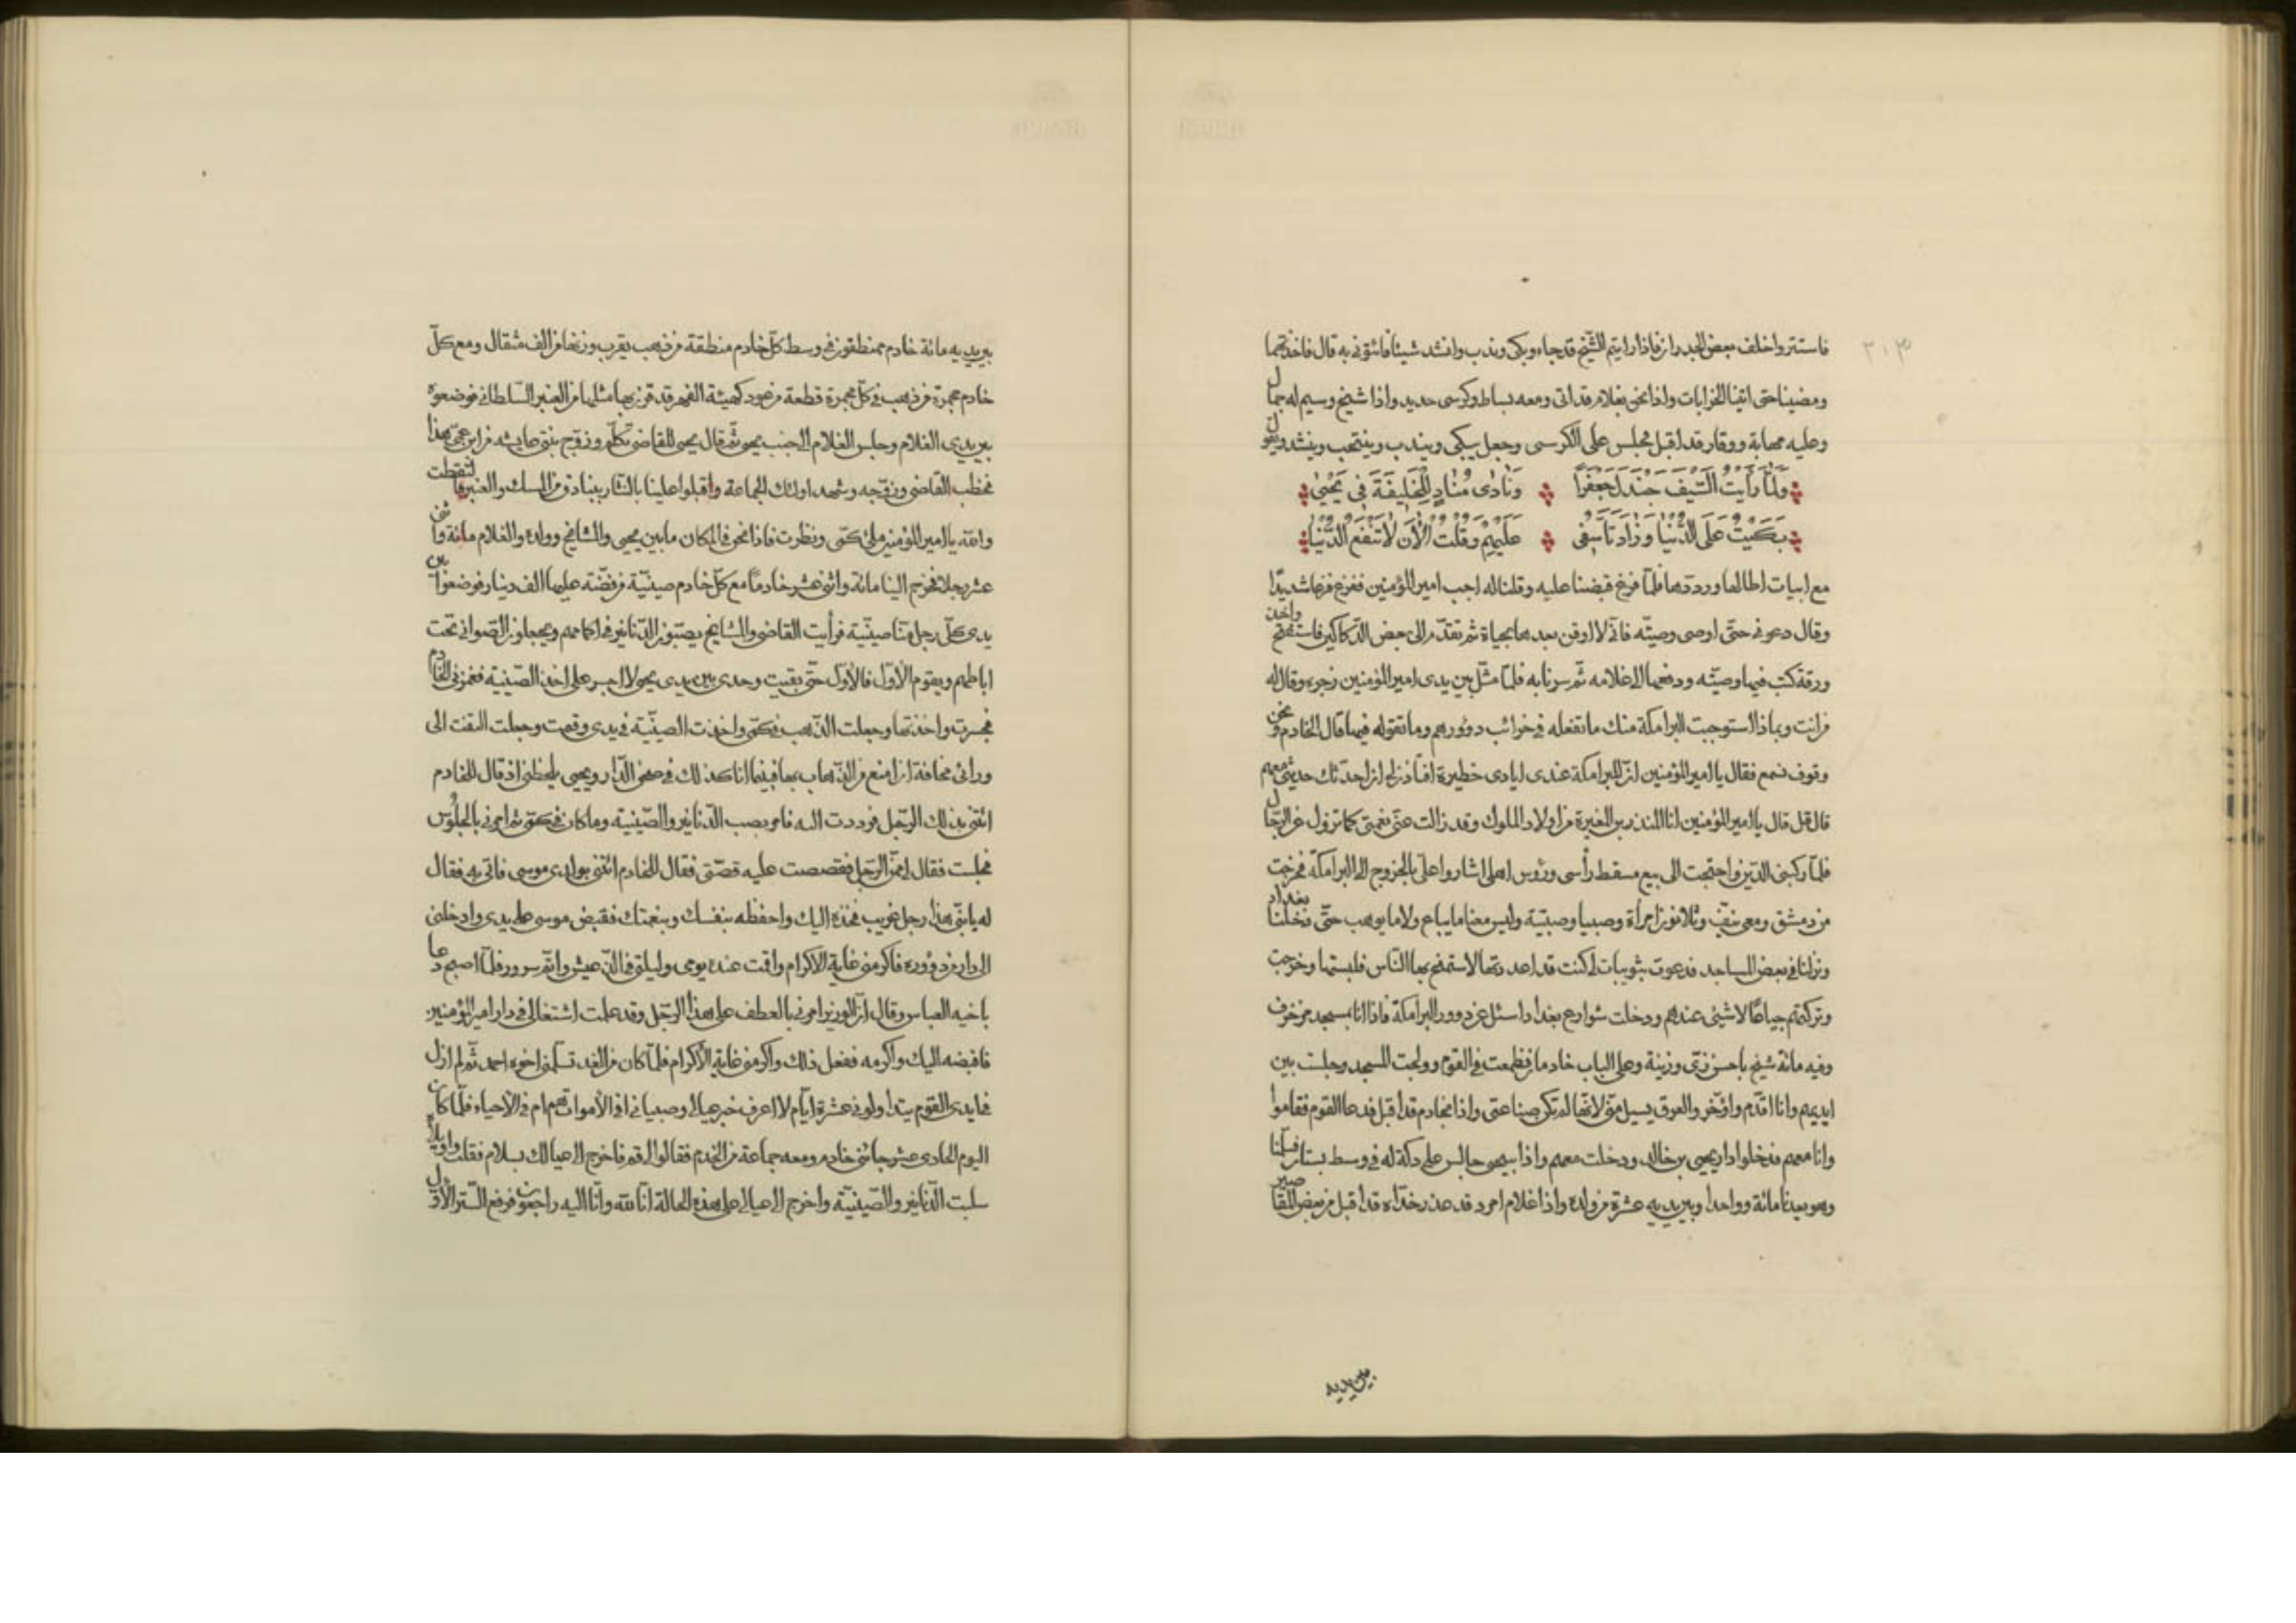 ٣٠٣
فاستتروا خلف بعض الجدران فاذا رايتم الشيخ قد جاء وبكى وندب وانشد شيئا فائتونى به قال فاخذتهما
ومضينا حتى اتينا الخرابات واذا نحن بغلام قد اتى ومعه بساط وكرسى حديد واذا شيخ وسيم له جمال
وعليه مهابة ووقار قد اقبل فجلس على الكرسى وجعل يبكى ويندب وينتحب وينشد ويقول
وَلَمّا رَأَيْتُ السَّيْفَ جَنْدَلَ جَعْفَراً وَنادى مُنادٍ لِلْخَليفَةِ فى يَحْيى
بَكَيْتُ عَلَى الدُّنْيا وَزادَ تَأَسُّفى عَلَيْهِمْ وَقُلْتُ الْآنَ لا تَنْفَعُ الدُّنْيا
مع ابيات اطالها ورددها فلمّا فرغ قبضنا عليه وقلنا له اجب امير المؤمنين ففزع فزعا شديدًا
وقال دعونى حتّى اوصى وصيّته فانّى لا اوقن بعدها بحياة ثم تقدّم الى بعض الدّكاكين فاستفتح واخذ
ورقة كتب فيها وصيّته ودفعها الى غلامه ثمّ سرنا به فلمّا مثّل بين يدى امير المؤمنين زجره وقال له
من انت وبماذا استوجبت البرامكة منك ما تفعله فى خرائب دورهم وما تقوله فيها قال الخادم ونحن
وقوف نسمع فقال يا امير المؤمنين انّ للبرامكة عندى ايادى خطيرة افتاذن لى ان احدّثك حديثى معهم
قال قل قال يا امير المؤمنين انا المنذر بن المغيرة من اولاد الملوك وقد زالت عنّى نعمتى كما تزول عن الرّجال
فلمّا ركبنى الدّين واحتجت الى بيع مسقط رأسى ورؤس اهلى اشاروا علىّ بالخروج الى البرامكة فخرجت
من دمشق ومعى نيّف وثلاثون امرأة وصبيا وصبيّة وليس معنا ما يباع ولا ما يوهب حتّى دخلنا بغداد
ونزلنا فى بعض المساجد فدعوت بثويبات لى كنت قد اعددتها لاستمنح بها النّاس فلبستها وخرجت
وتركتهم جياعًا لا شيئى عندهم ودخلت شوارع بغداد اسئل عن دور البرامكة فاذا انا بمسجد مزخرف
وفيه مائة شيخ باحسن زىّ وزينة وعلى الباب خادمان فطمعت فى القوم وولجت المسجد وجلست بين
ايديهم وانا اقدّم واؤخّر والعرق يسيل منّى لانّها لم تكن صناعتى واذا بخادم قد اقبل فدعا القوم فقاموا
وانا معهم فدخلوا دار يحيى بن خالد ودخلت معهم واذا بيحيى جالس على دكة له فى وسط بستان فسلّمنا
وهو يعدنا مائة وواحدا وبين يديه عشرة من ولده واذا غلام امرد قد عذر خدّاه قد اقبل من بعض المقاصير
بين يديه
بين يديه مائة خادم ممنطقون فى وسط كلّ خادم منطقة من ذهب يقرب وزنها من الف مثقال ومع كلّ
خادم مجمرة من ذهب فى كلّ مجمرة قطعة من عود كهيئة الفهر قد قرن بها مثلها من العنبر السّلطانى فوضعوه
بين يدى الغلام وجلس الغلام الى جنب يحيى ثمّ قال يحيى للقاضى تكلّم وزوّج بنتى عايشه من ابن عمّى هذا
فخطب القاضى وزوّجه وشهد اولئك الجماعة واقبلوا علينا بالنّثار ببنادق من المسك والعنبر فالتقطت
والله يا امير المؤمنين ملئ كمّى ونظرت فاذا نحن فى المكان ما بين يحيى والمشايخ وولده والغلام مائة واثنى
عشر رجلا فخرج الينا مائة واثنى عشر خادمًا مع كلّ خادم صينيّة من فضّة عليها الف دينار فوضعوا بين
يدى كلّ رجل منّا صينيّة فرأيت القاضى والمشايخ يصبّون الدّنانير فى اكمامهم ويجعلون الصّوانى تحت
اباطهم ويقوم الاوّل فالاوّل حتّى بقيت وحدى بين يدى يحيى لا اجسر على اخذ الصّينيّة فغمزنى الخادم
فجسرت واخذتها وجعلت الذّهب فى كمّى واخذت الصينيّة فى يدى وقمت وجعلت التفت الى
ورائى مخافة ان امنع من الذّهاب بها فبينما انا كذلك فى صحن الدّار ويحيى يلحظنى اذ قال للخادم
ائتنى بذلك الرّجل فرددت اليه فامر بصب الدّنانير والصّينيّة وما كان فى كمّى ثم امرنى بالجلوس
فجلست فقال ممّن الرّجل فقصصت عليه قصّتى فقال للخادم ائتنى بولدى موسى فاتى به فقال
له يا بنىّ هذا رجل غريب فخذه اليك واحفظه بنفسك وبنعمتك فقبض موسى على يدى وادخلنى
الى دار من دوره فاكرمنى غاية الاكرام واقمت عنده يومى وليلتى فى الذّ عيش واتمّ سرور فلمّا اصبح دعا
باخيه العباس وقال انّ الوزير امرنى بالعطف على هذا الرّجل وقد علمت اشتغالى فى دار امير المؤمنين
فاقبضه اليك واكرمه ففعل ذلك واكرمنى غاية الاكرام فلمّا كان من الغد تسلّمنى اخوه احمد ثمّ لم ازل
فى ايدى القوم يتداولونى عشرة ايّام لا اعرف خبر عيالى وصبيانى افى الأموات هم ام فى الأحياء فلمّا كان
اليوم الحادى عشر جائنى خادم ومعه جماعة من الخدم فقالوا لى قم فاخرج الى عيالك بسلام فقلت واويلاه
سلبت الدّنانير والصّينيّة واخرج الى عيالى على هذه الحالة انّا لله وانّا اليه راجعون فرفع السّتر الأوّل